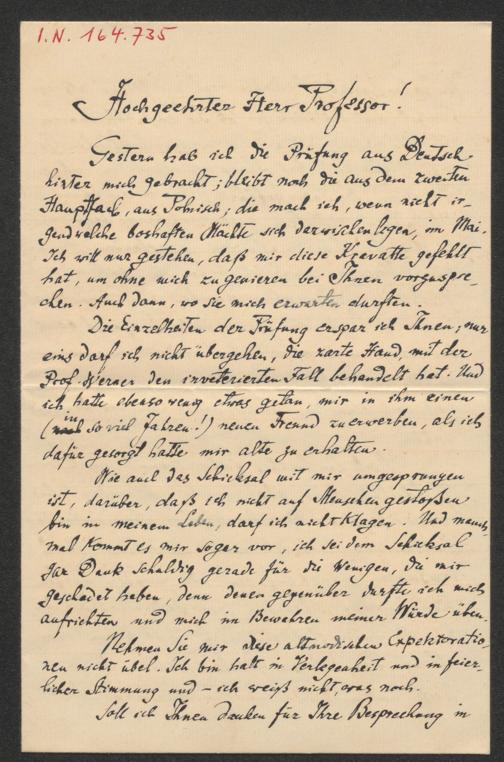 I.N. 164.735
Hochgeehrter Herr Professor!
Gestern hab ich die Prüfung aus Deutsch
hinter mich gebracht; bleibt noch die aus dem zweiten
Hauptfach, aus Polnisch; die mach ich, wenn nicht ir-
gendwelche boshaften Mächte sich dazwischenlegen, im Mai.
Ich will nur gestehen, daß mir diese Kravatte gefehlt
hat, um ohne mich zu genieren bei Ihnen vorzuspre-
chen. Auch dann, wo Sie mich erwarten durften.
Die Einzelheiten der Prüfung erspar ich Ihnen; nur
eins darf ich nicht übergehen, die zarte Hand, mit der
Prof. Werner den inveterierten Fall behandelt hat. Und
ich hatte ebensowenig etwas getan, mir in ihm einen
(in so viel Jahren!) neuen Freund zu erwerben, als ich
dafür gesorgt hatte mir alte zu erhalten.
Wie auch das Schicksal mit mir umgesprungen
ist, darüber, daß ich nicht auf Menschen gestoßen
bin in meinem Leben, darf ich nicht klagen. Und manch-
mal kommt es mir sogar vor, ich sei dem Schicksal
gar Dank schuldig gerade für die Wenigen, die mir
geschadet haben, denn denen gegenüber durfte ich mich
aufrichten und mich im Bewahren meiner Würde üben.
Nehmen Sie mir diese altmodischen Expektoratio-
nen nicht übel. Ich bin halt in Verlegenheit und in feier-
licher Stimmung und – ich weiß nicht, was noch.
Soll ich Ihnen danken für Ihre Besprechung in